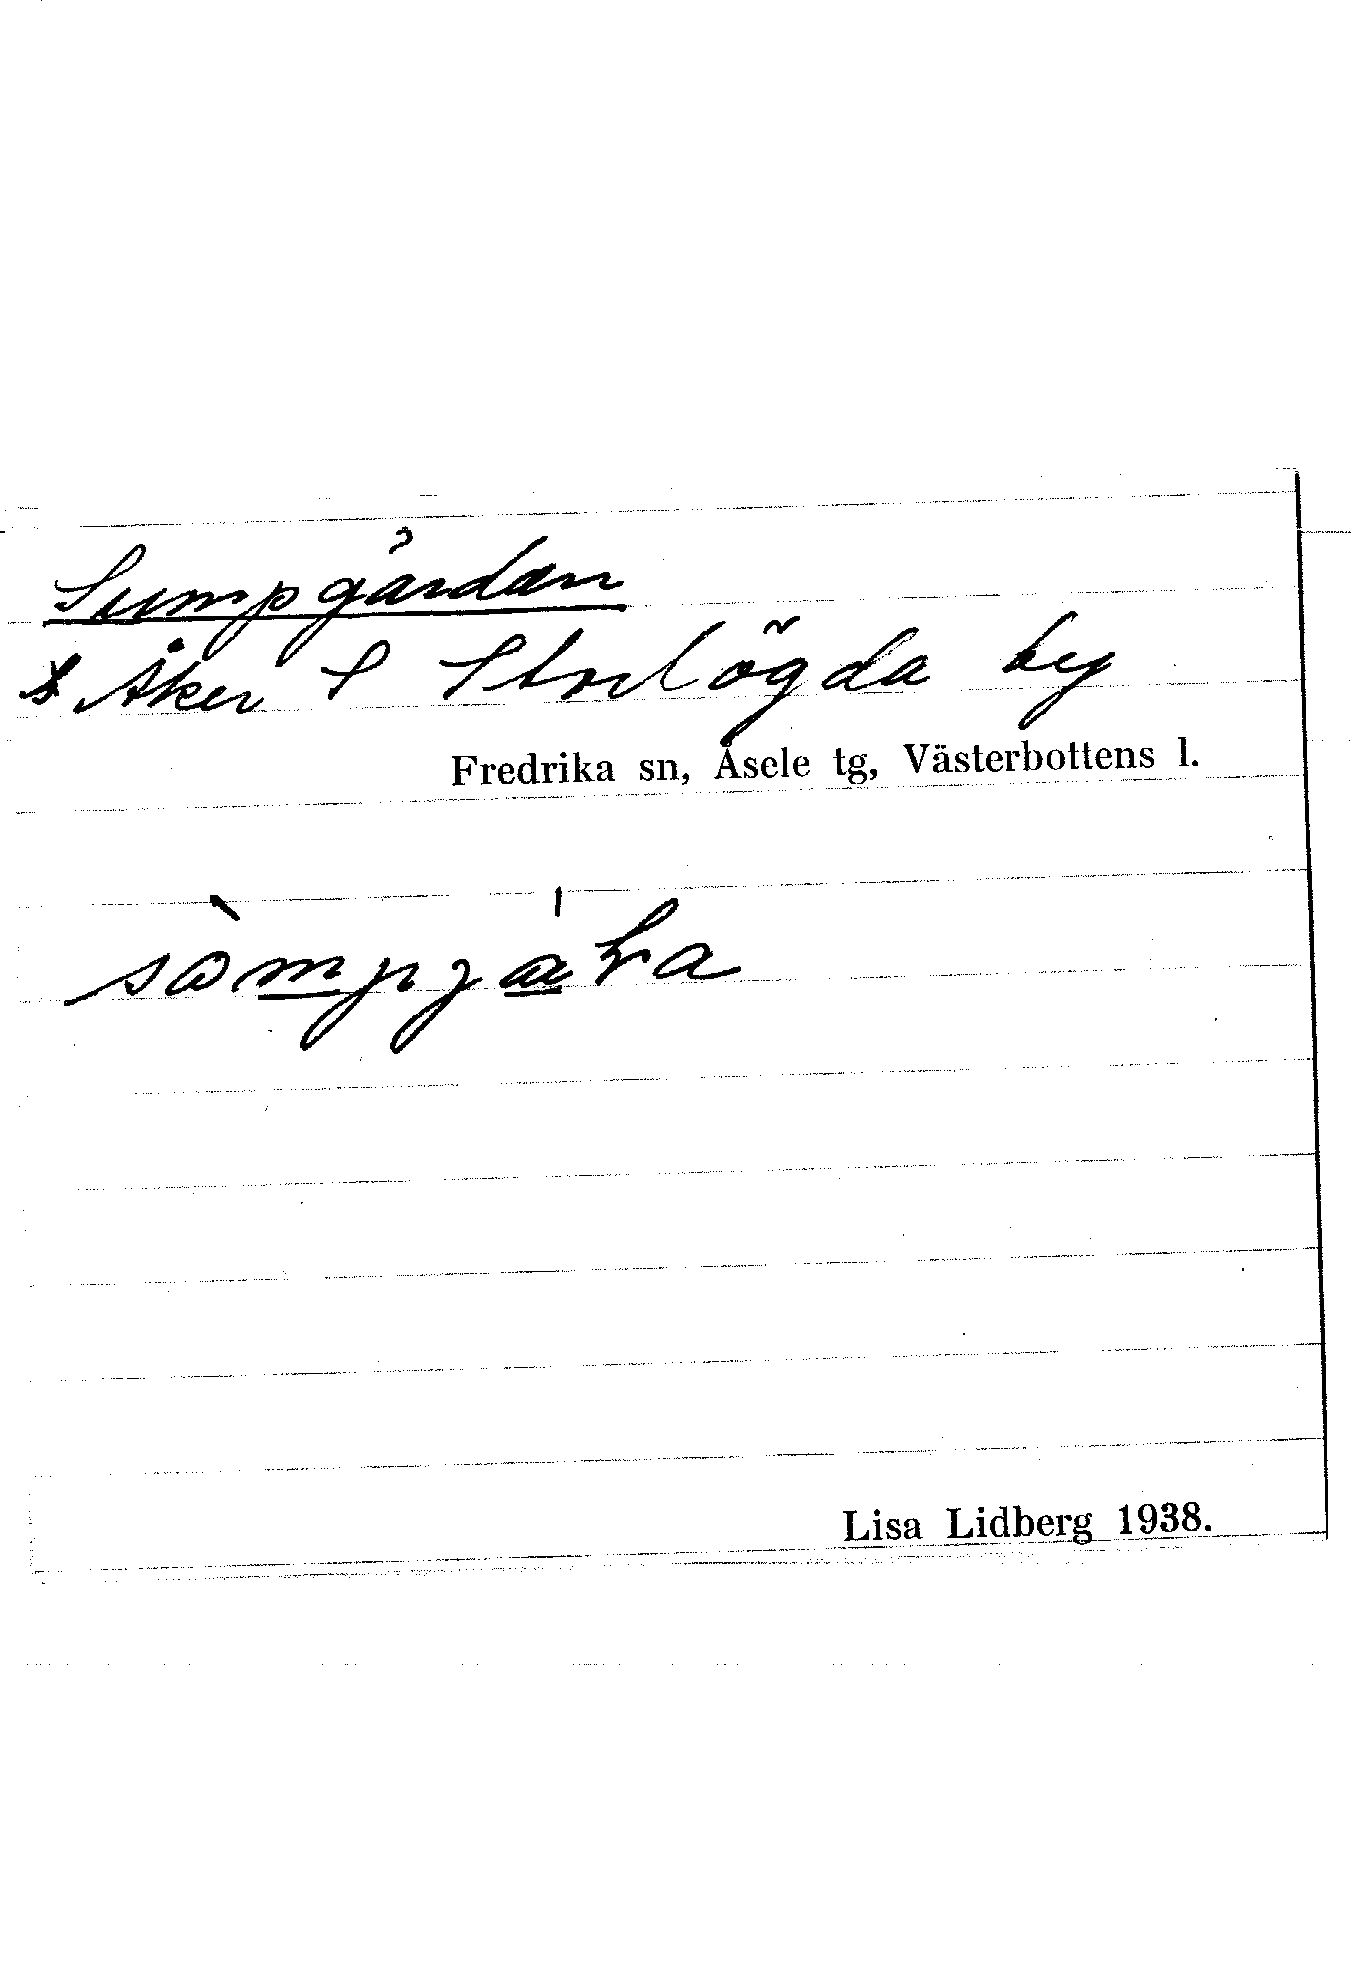 Sumpgårdan
Åker S Storlögda by
Fredrika sn, Åsele tg, Västerbottens l.
Lisa Lidberg 1938.